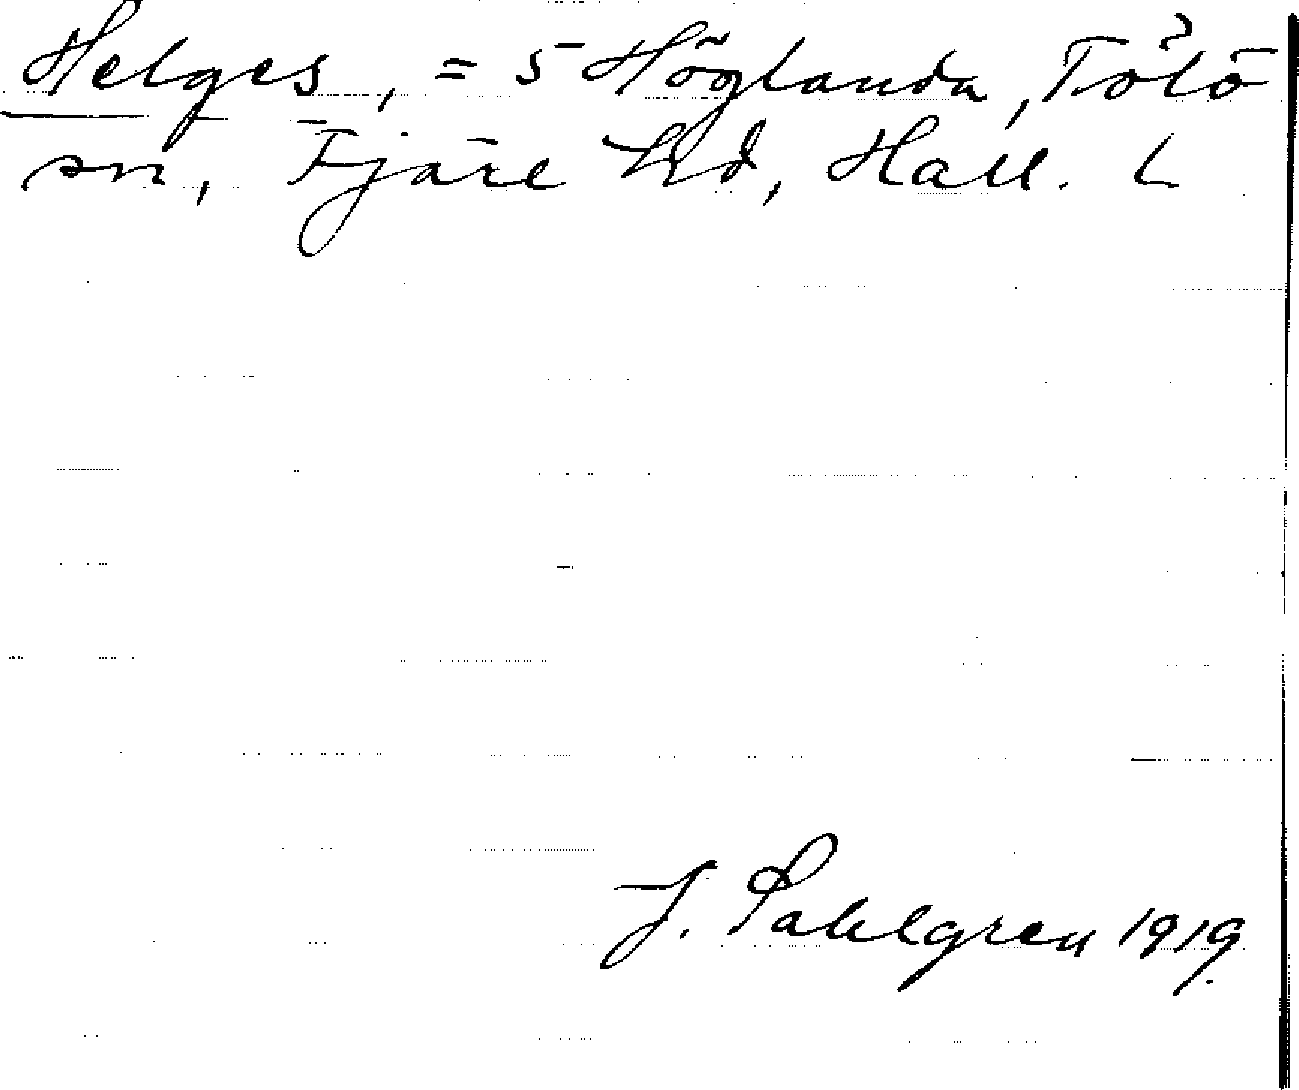 Helges, = 5 Höglanda, Tölö
sn, Fjäre hd, Hall. l
J. Sahlgren 1919.